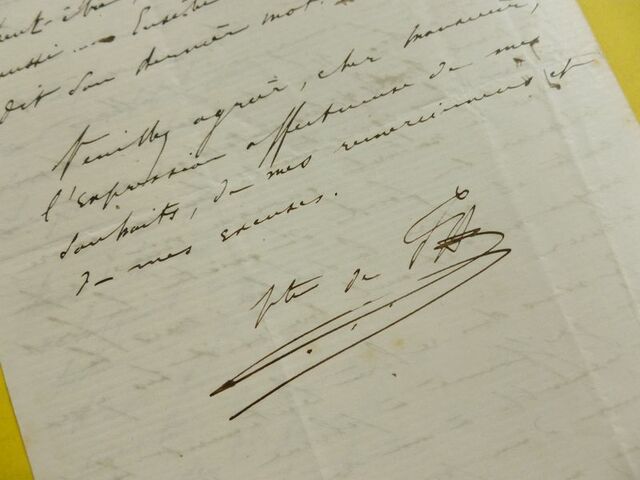 peut-être
aussi
dit son dernier mot.
Veuillez agréer, cher monsieur,
l'expression affectueuse de mes
souhaits, de mes remerciements et
de mes excuses.
Vte de